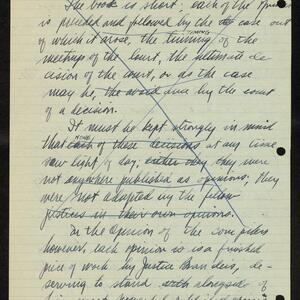 The book is short: each of the
is preceded and followed by the the case out
of which it arose, the TIMING turning of the
meetings of the Court, the ultimate de
cision of the court, or as the case
may be, the avoid ance by the court
of a decision.
It must be kept strongly in mind
that each NONE of these decisions at any time
saw light of day, either they they were
not anywhere published as opinions, they
were not adopted by the fellow
justices in their own opinions.
In the opinion of the compilers
however, each opinion so is a finished
piece of work by Justice Brandeis, de-
serving to stand with alongside of